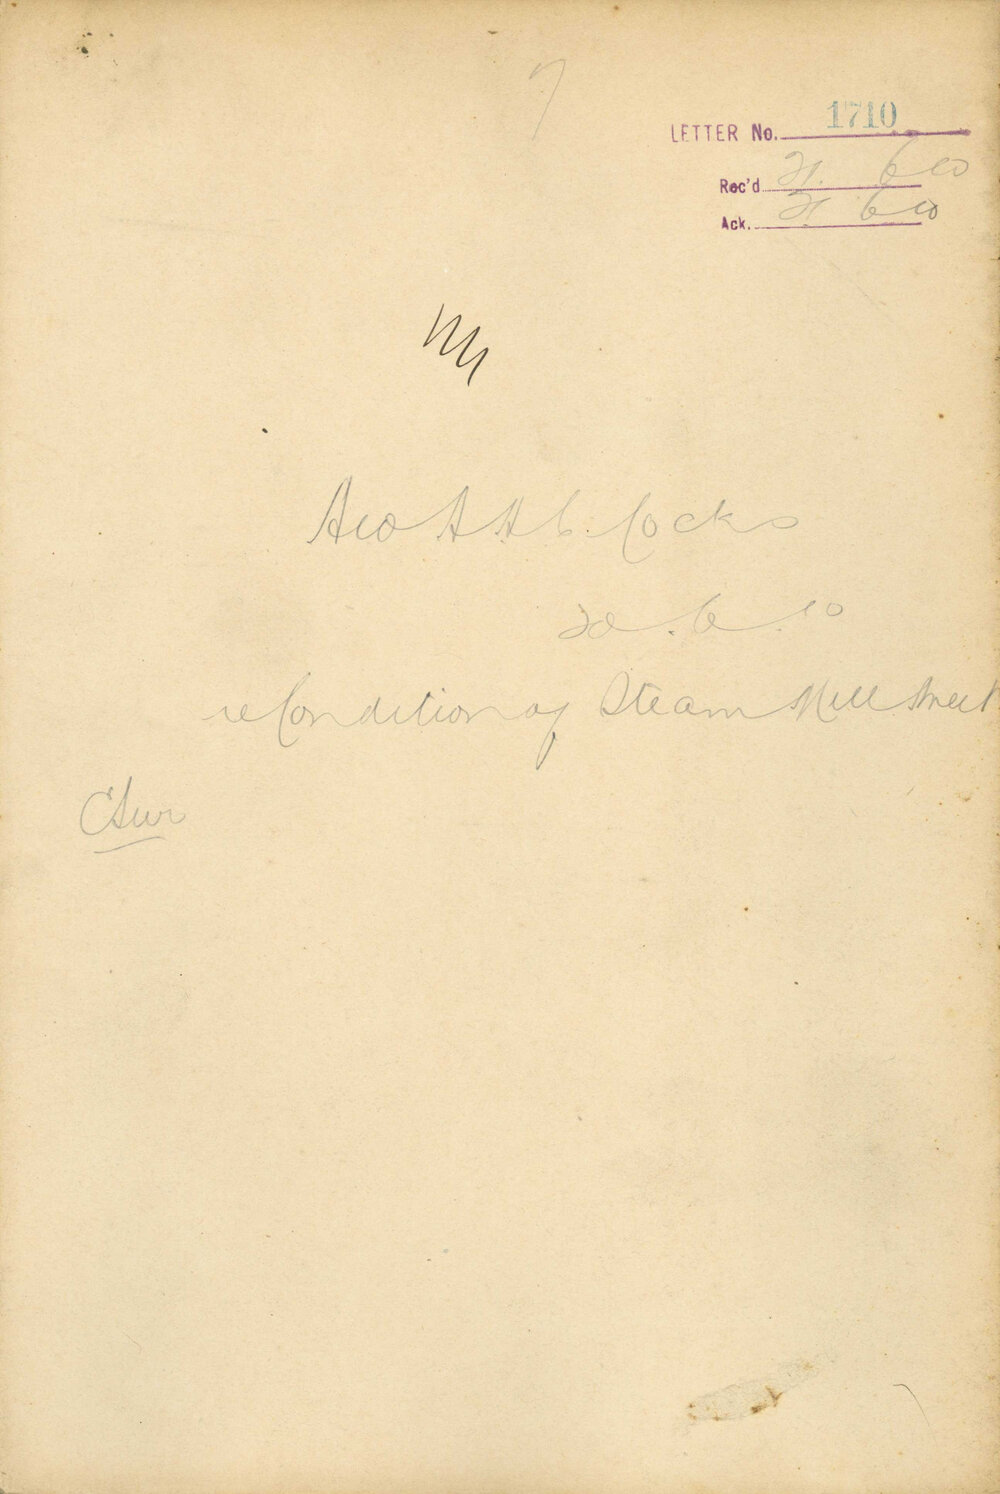 LETTER No. 1710
Rec'd 21. 6 00
Ack. 21 6 00
Geo H A C. Cocks
20. 6. 00
re Condition of Steam Mill Street
C Sur